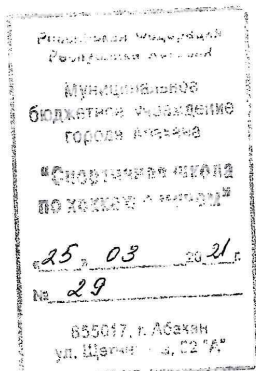 Российская Федерация
Республика Хакасия
Муниципальное
бюджетное учреждение
города Абакана
"Спортивная школа
по хоккею с мячом"
"25" 03 2021 г.
№ 29
655017, г. Абакан
ул. 22 "А"